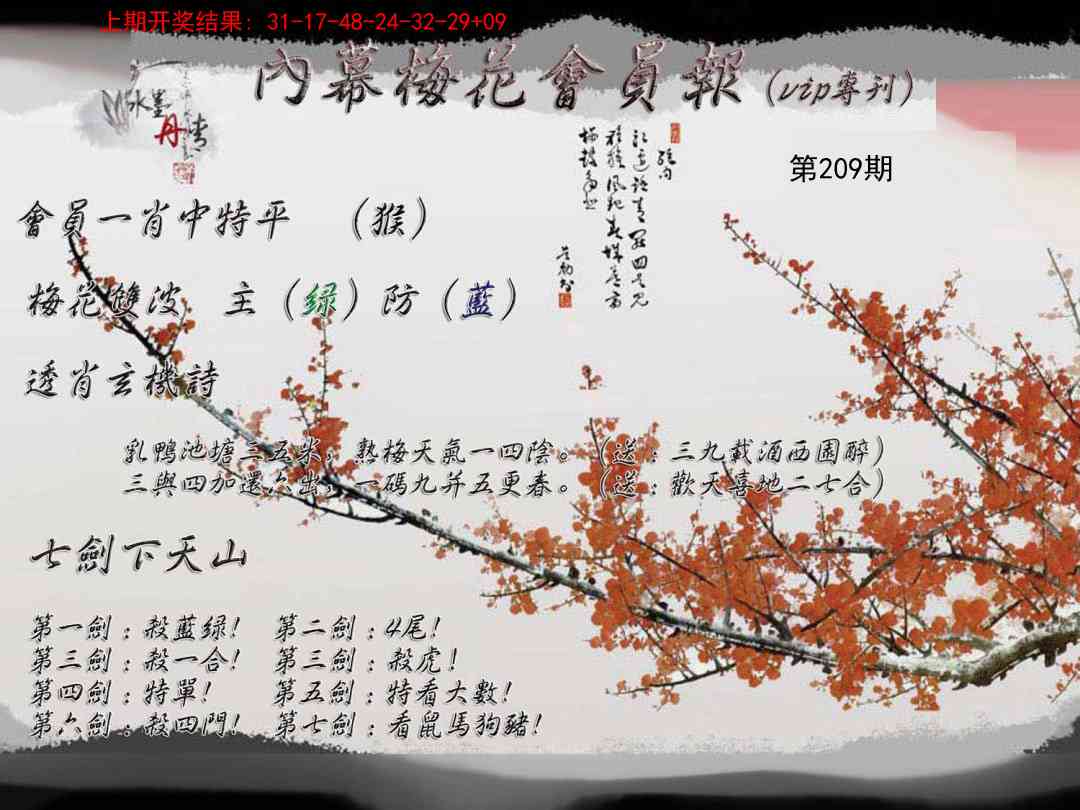 上期开奖结果: 31-17-48-24-32-29+09
內幕梅花會員報(vip專刊)
水墨丹青
第209期
會員一肖中特平 (猴)
梅花雙波 主(绿)防(藍)
透肖玄機詩
乳鴨池塘三五米，熟梅天氣一四陰。(送:三九載酒西園醉)
三與四加還六出，一碼九并五更春。(送:歡天喜地二七合)
七劍下天山
第一劍:殺藍绿! 第二劍:4尾!
第三劍:殺一合! 第三劍:殺虎!
第四劍:特單! 第五劍:特看大數!
第六劍:殺四門! 第七劍:看鼠馬狗豬!